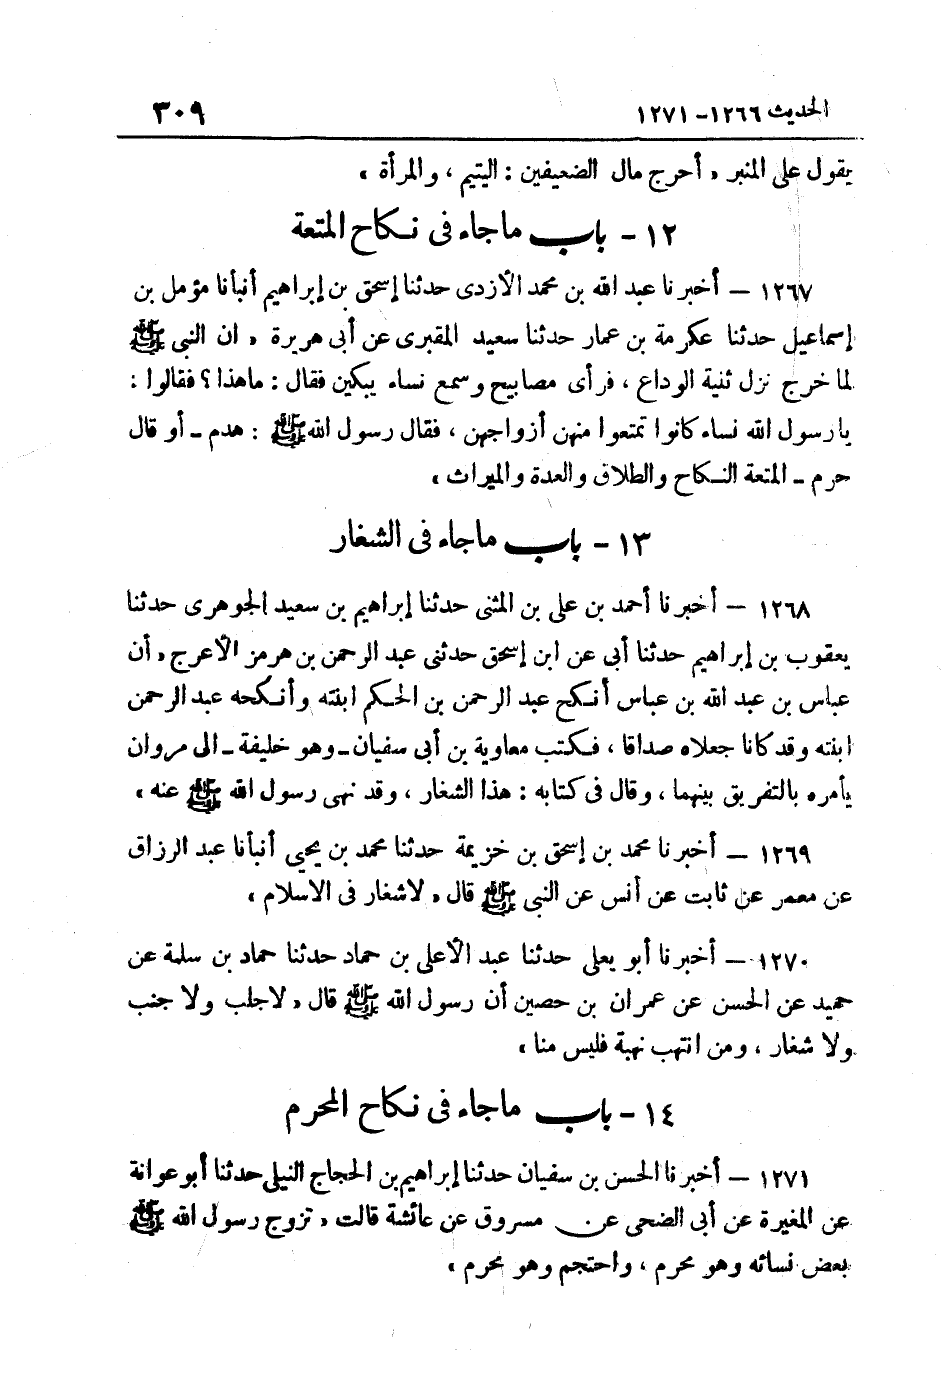 الحديث ١٢٦٦ - ١٢٧١
٣٠٩
يقول على المنبر « أحرج مال الضعيفين : اليتيم ، والمرأة »
١٢ - باب ما جاء فى نكاح المتعة
١٢٦٧ – أخبرنا عبد الله بن محمد الأزدى حدثنا إسحق بن إبراهيم أنبأنا مؤمل بن
إسماعيل حدثنا عكرمة بن عمار حدثنا سعيد المقبرى عن أبى هريرة « ان النبى ﷺ
لما خرج نزل ثنية الوداع ، فرأى مصابيح وسمع نساء يبكين فقال : ما هذا ؟ فقالوا :
يا رسول الله نساء كانوا تمتعوا منهن أزواجهن ، فقال رسول الله ﷺ : هدم - أو قال
حرم - المتعة النكاح والطلاق والعدة والميراث »
١٣ - باب ما جاء فى الشغار
١٢٦٨ – أخبرنا أحمد بن على بن المثنى حدثنا إبراهيم بن سعيد الجوهرى حدثنا
يعقوب بن إبراهيم حدثنا أبى عن ابن إسحق حدثنى عبد الرحمن بن هرمز الأعرج « أن
عباس بن عبد الله بن عباس أنكح عبد الرحمن بن الحكم ابنته وأنكحه عبد الرحمن
ابنته وقد كانا جعلاه صداقا ، فكتب معاوية بن أبى سفيان - وهو خليفة - الى مروان
يأمره بالتفريق بينهما ، وقال فى كتابه : هذا الشغار ، وقد نهى رسول الله ﷺ عنه »
١٢٦٩ – أخبرنا محمد بن إسحق بن خزيمة حدثنا محمد بن يحيى أنبأنا عبد الرزاق
عن معمر عن ثابت عن أنس عن النبى ﷺ قال « لا شغار فى الاسلام »
١٢٧٠ – أخبرنا أبو يعلى حدثنا عبد الأعلى بن حماد حدثنا حماد بن سلمة عن
حميد عن الحسن عن عمران بن حصين أن رسول الله ﷺ قال « لا جلب ولا جنب
ولا شغار ، ومن انتهب نهبة فليس منا »
١٤ - باب ما جاء فى نكاح المحرم
١٢٧١ – أخبرنا الحسن بن سفيان حدثنا إبراهيم بن الحجاج النيلى حدثنا أبو عوانة
عن المغيرة عن أبى الضحى عن مسروق عن عائشة قالت « تزوج رسول الله ﷺ
بعض نسائه وهو محرم ، واحتجم وهو محرم »